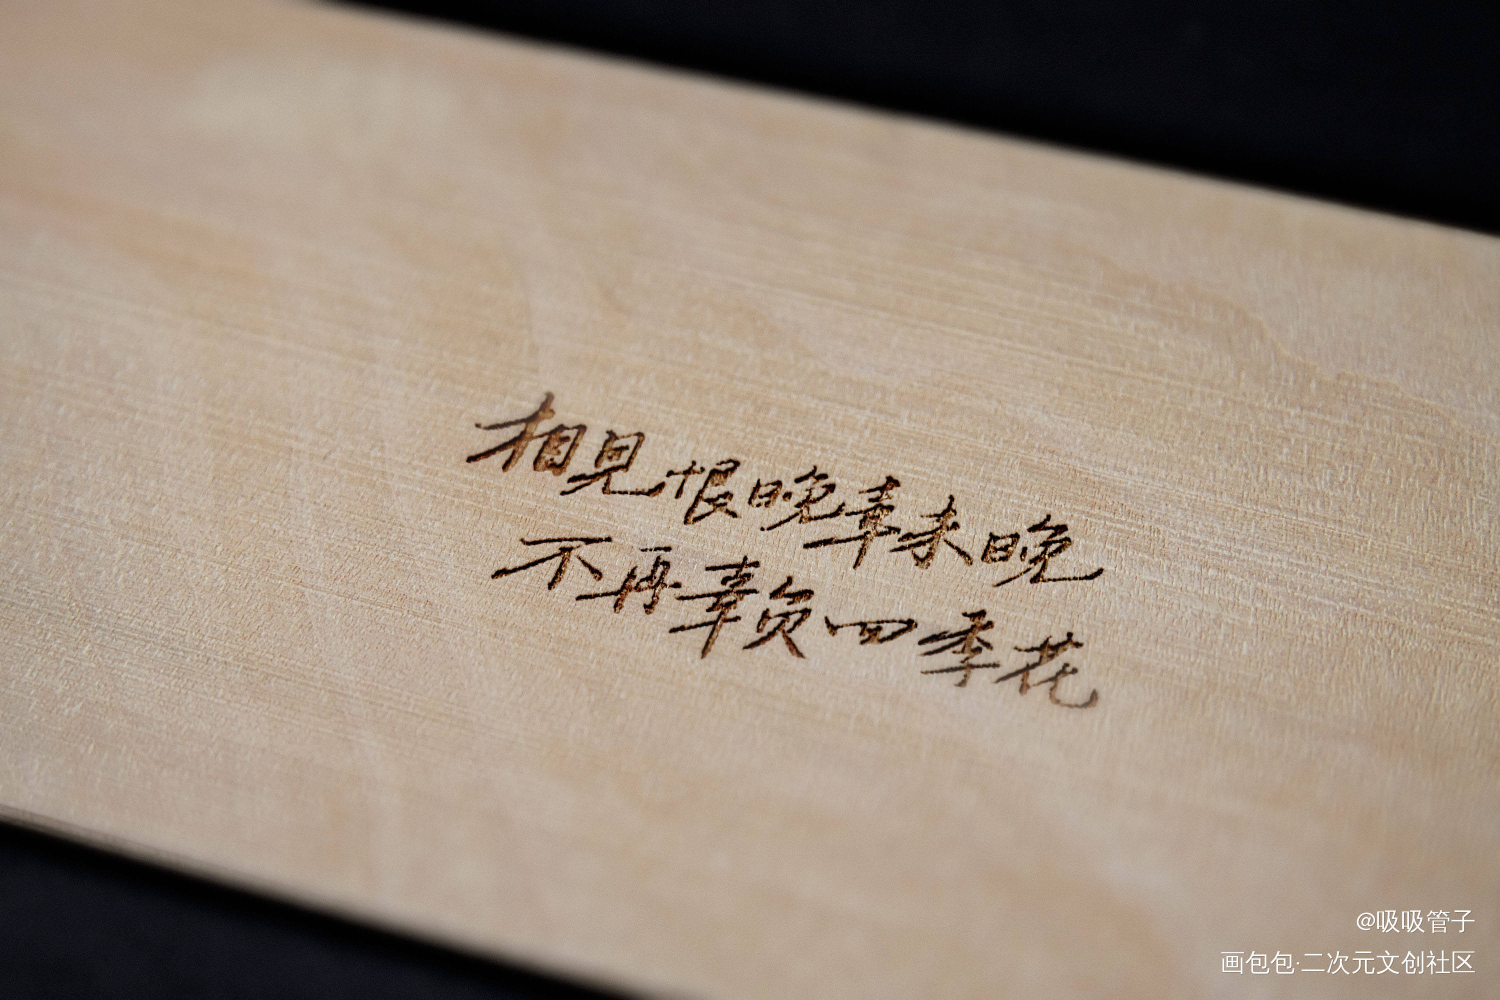 相见恨晚幸未晚
不再辜负四季花
@吸吸管子
画包包·二次元文创社区